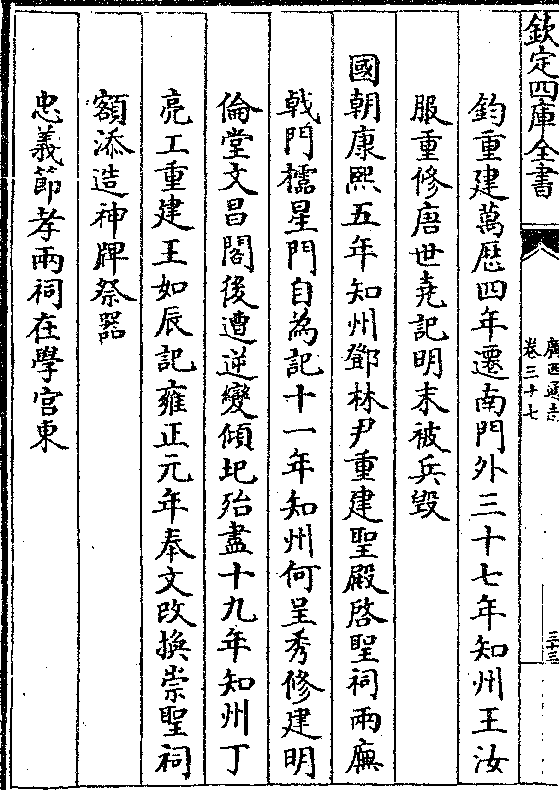 欽定四庫全書
廣西通志
卷三十七
三十三
鈞重建萬歷四年遷南門外三十七年知州王汝
服重修唐世堯記明末被兵毀
國朝康熙五年知州鄧林尹重建聖殿啓聖祠兩廡
戟門櫺星門自為記十一年知州何呈秀修建明
倫堂文昌閣後遭逆變傾圮殆盡十九年知州丁
亮工重建王如辰記雍正元年奉文改換崇聖祠
額添造神牌祭器
忠義節孝兩祠在學宫東